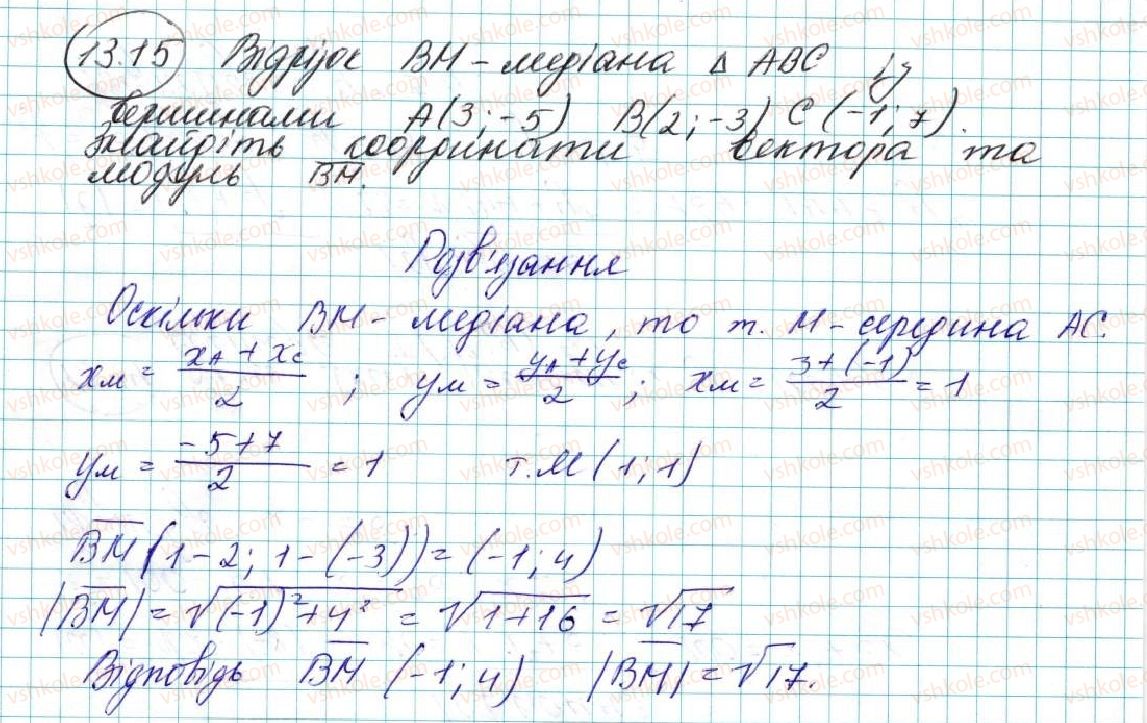 13.15 Відрізок BM - медіана Δ ABC із
вершинами A(3;-5) B(2;-3) C(-1;7).
Знайдіть координати вектора та
модуль BM.
Розв'язання
Оскільки BM - медіана, то т. M - середина AC.
xм = (xA + xC)/2 ; yм = (yA + yC)/2 ; xм = (3+(-1))/2 = 1
yм = (-5+7)/2 = 1 т. M(1;1)
BM (1-2; 1-(-3)) = (-1;4)
|BM| = √((-1)²+4²) = √(1+16) = √17
Відповідь BM (-1;4) |BM| = √17.